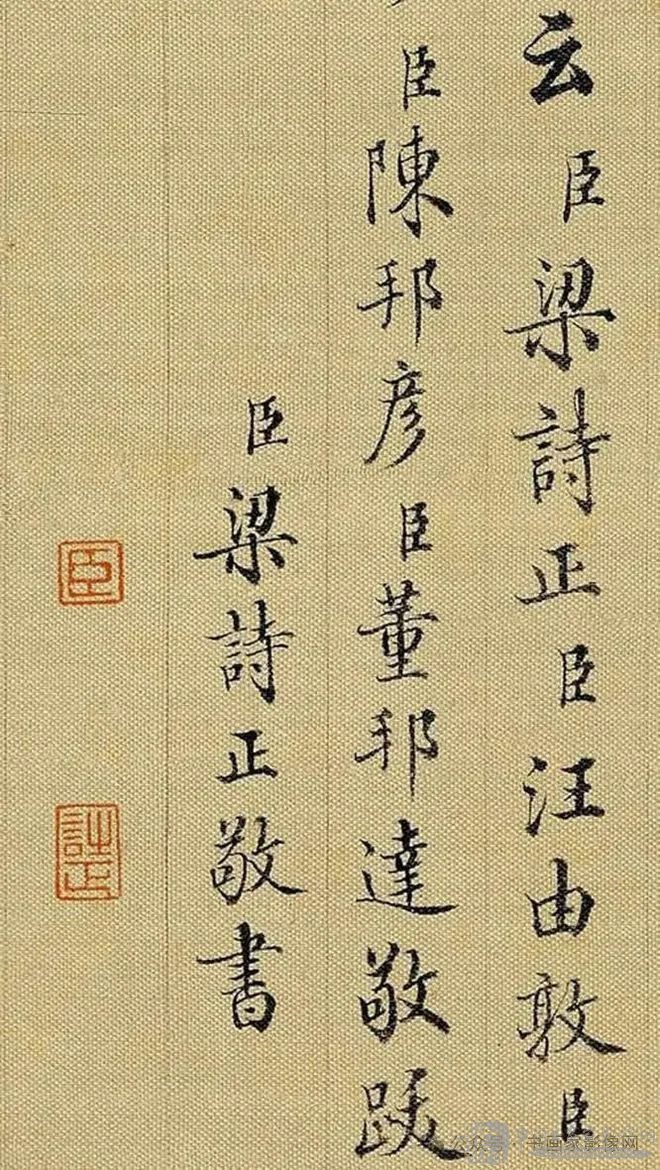 云臣梁詩正臣汪由敦臣
臣陳邦彦臣董邦達敬跋
臣梁詩正敬書
臣
詩正
公众号 书画家影像网